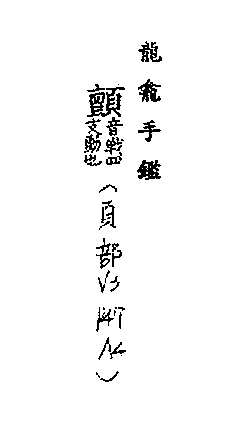 龍龕手鑑
顫音戰四支動也（頁部）